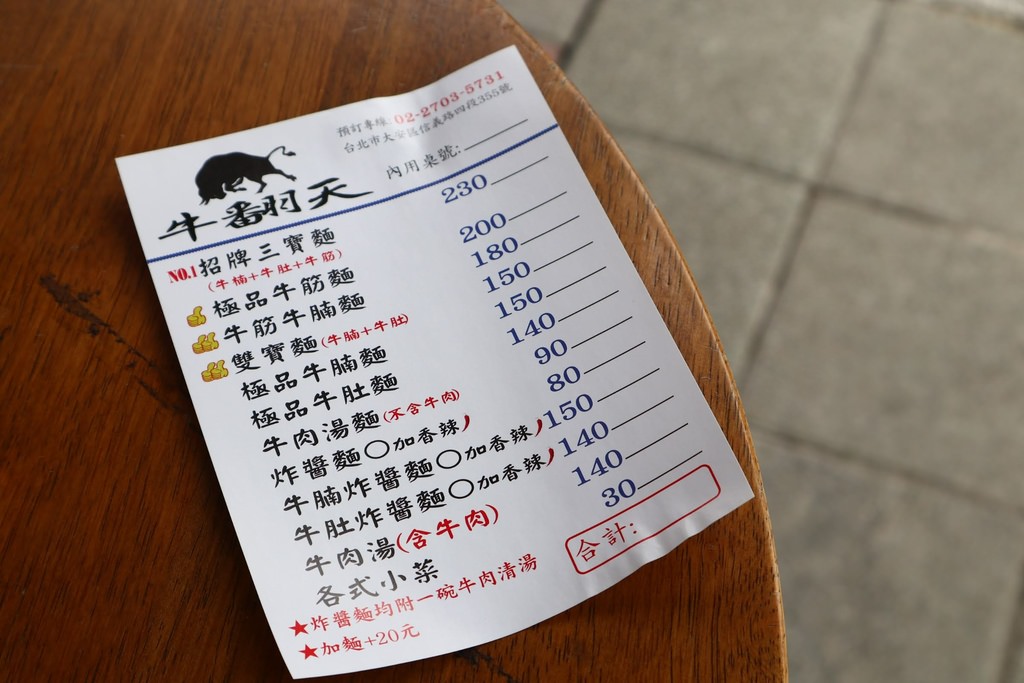 預訂專線: 02-2703-5731
台北市大安區信義路四段355號
牛翻天
內用桌號:
NO.1 招牌三寶麵 230
(牛楠+牛肚+牛筋)
極品牛筋麵 200
牛筋牛腩麵 180
雙寶麵(牛腩+牛肚) 150
極品牛腩麵 150
極品牛肚麵 140
牛肉湯麵(不含牛肉) 90
炸醬麵○加香辣 80
牛腩炸醬麵○加香辣 150
牛肚炸醬麵○加香辣 140
牛肉湯(含牛肉) 140
各式小菜 30
合計:
★炸醬麵均附一碗牛肉清湯
★加麵+20元